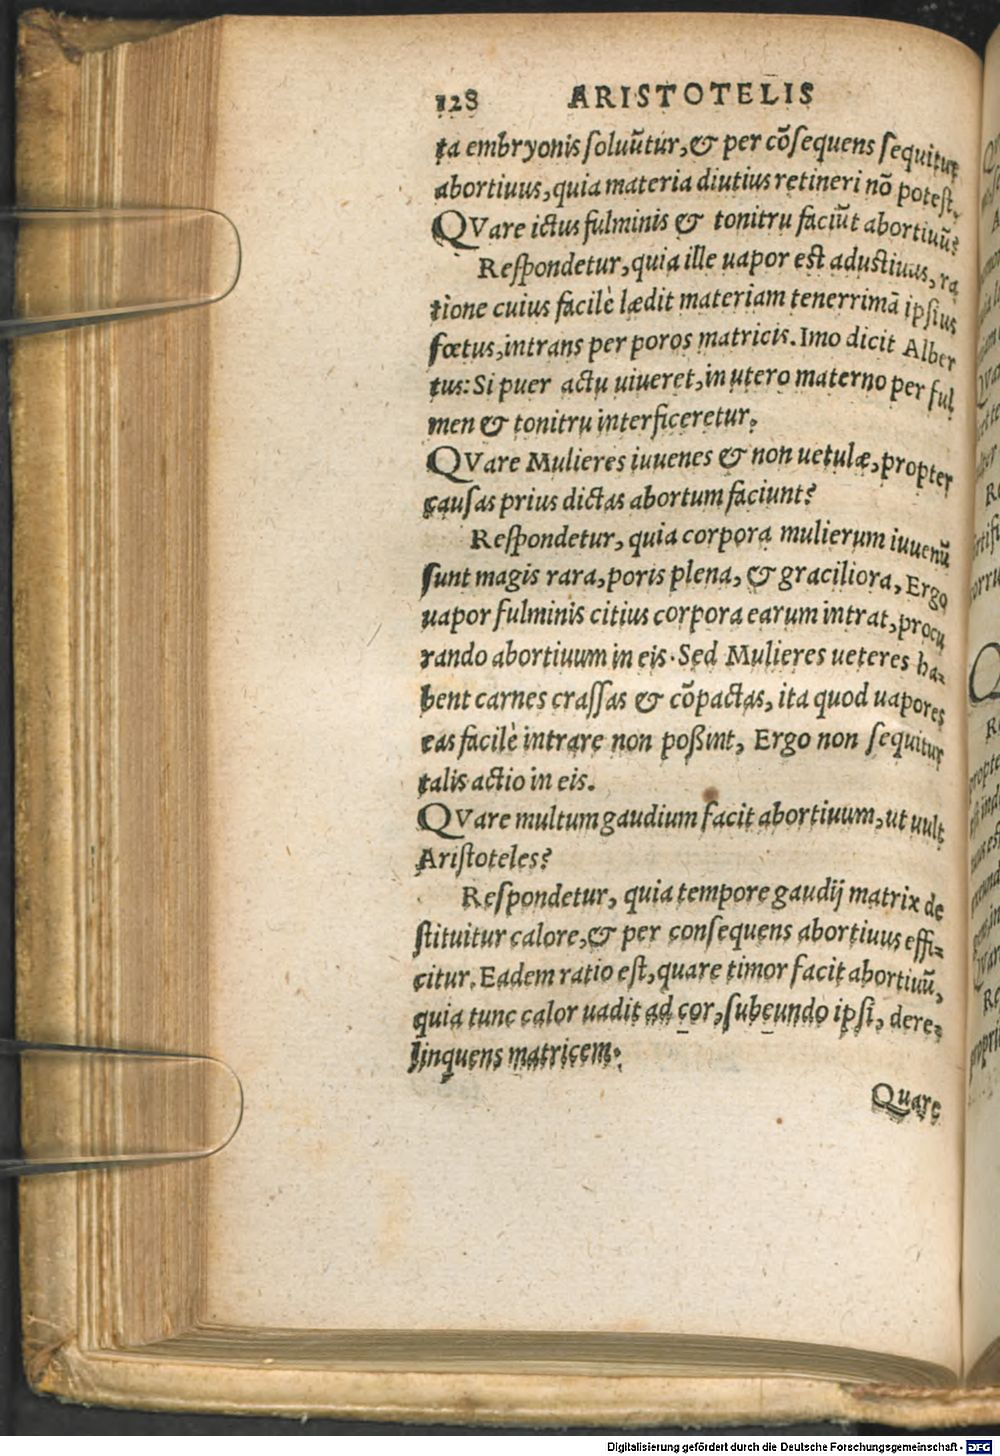 128 ARISTOTELIS
ta embryonis soluũtur, & per cõsequens sequitur
abortiuus, quia materia diutius retineri nõ potest.
QVare ictus fulminis & tonitru faciũt abortiuũ?
Respondetur, quia ille uapor est adustiuus, ra
tione cuius facilè lædit materiam tenerrimã ipsius
fœtus, intrans per poros matricis. Imo dicit Alber
tus: Si puer actu uiueret, in utero materno per ful
men & tonitru interficeretur.
QVare Mulieres iuuenes & non uetulæ, propter
causas prius dictas abortum faciunt?
Respondetur, quia corpora mulierum iuuenũ
sunt magis rara, poris plena, & graciliora, Ergo
uapor fulminis citius corpora earum intrat, procu
rando abortiuum in eis. Sed Mulieres ueteres ha-
bent carnes crassas & cõpactas, ita quod uapores
eas facilè intrare non poßint, Ergo non sequitur
talis actio in eis.
QVare multum gaudium facit abortiuum, ut uult
Aristoteles?
Respondetur, quia tempore gaudij matrix de
stituitur calore, & per consequens abortiuus effi-
citur. Eadem ratio est, quare timor facit abortiuũ,
quia tunc calor uadit ad cor, subeundo ipsi, dere-
linquens matricem.
Quare
Digitalisierung gefördert durch die Deutsche Forschungsgemeinschaft - DFG